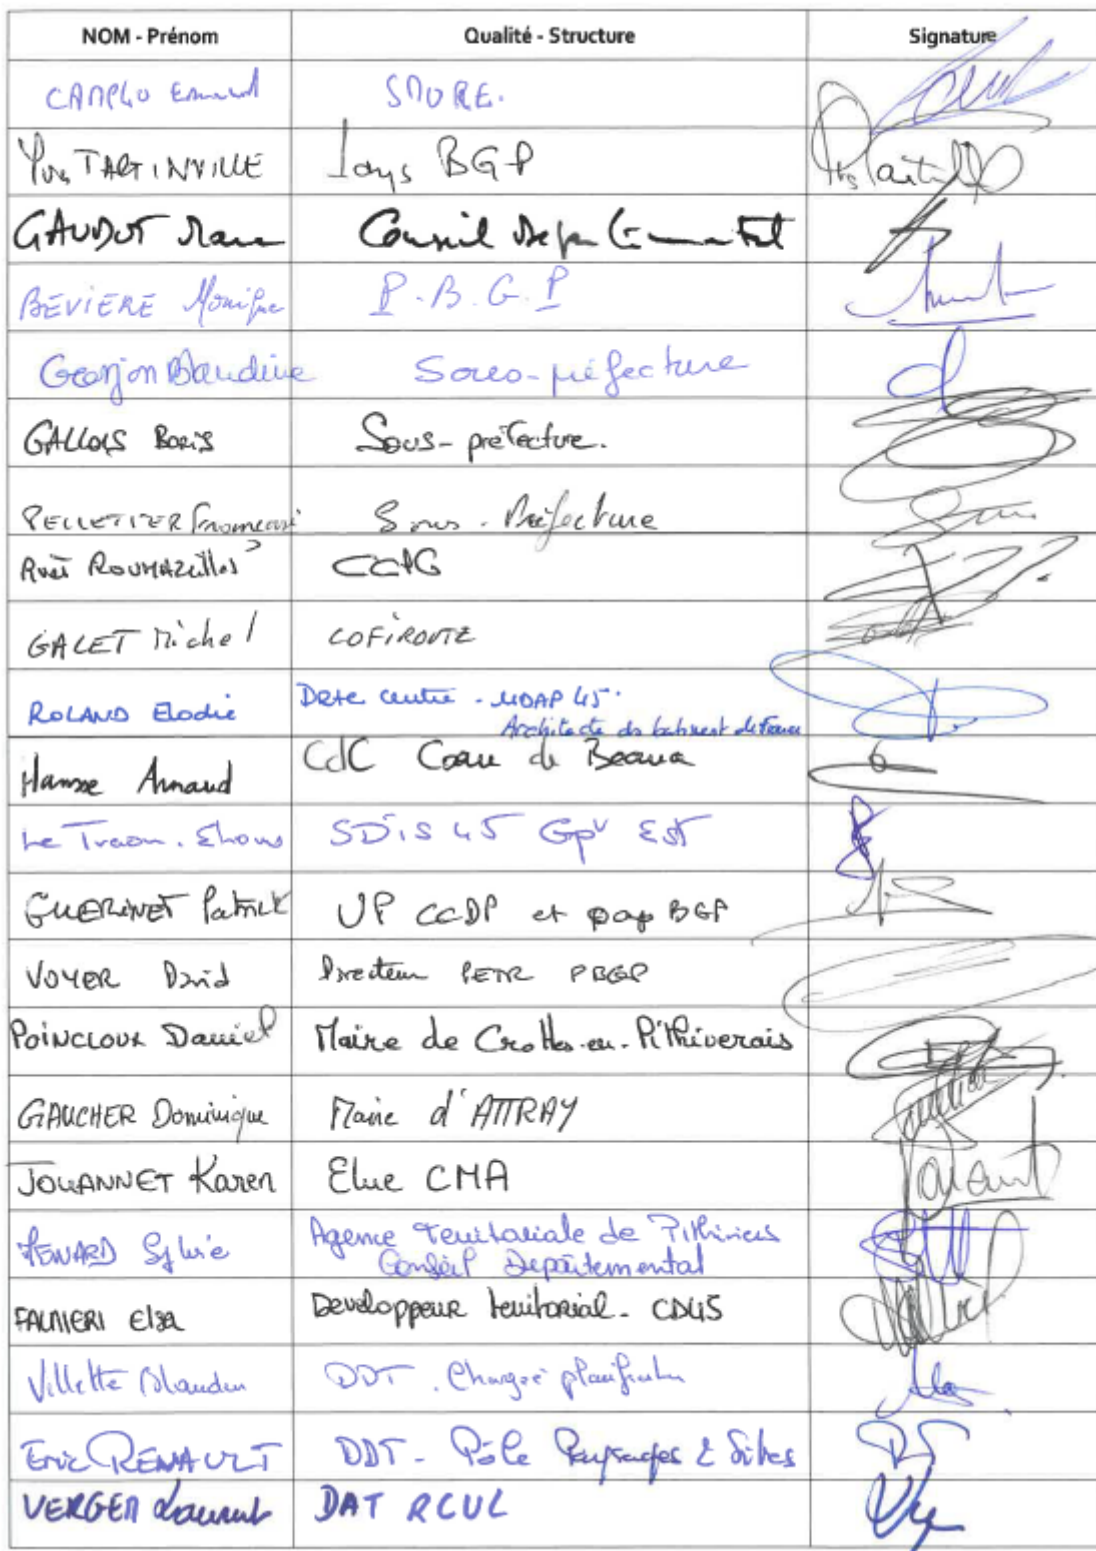 NOM - Prénom Qualité - Structure Signature
CAMPLO SMORE.
Yves TARTINVILLE Pays BGP
GAUDUT Marc Conseil Départemental
BEVIERE Monique P.B.G.P
Georjon Blandine Sous-préfecture
GALLOIS Boris Sous-préfecture.
PELLETIER Sous-Préfecture
ROUMAZEILLES CCPG
GALET Michel COFIROUTE
ROLAND Elodie centre - UDAP 45.
Architecte des batiment de France
Arnaud CdC Coeur de Beauce
Le Traon. SDIS 45 Gpt EST
GUERINET Patrick VP CCDP et pays BGP
VOYER David Directeur PETR PBGP
POINCLOUX Daniel Maire de Crottes-en-Pithiverais
GAUCHER Dominique Maire d'ATTRAY
JOUANNET Karen Elue CMA
Sylvie Agence Territoriale de Pithiviers
Conseil Départemental
Elsa Developpeur territorial - CD45
Villette Blandine DDT. Chargée planification
Eric RENAULT DDT - Pôle Paysages & Sites
VERGER Laurent DAT RCUL